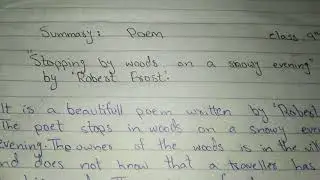 Summary: Poem class 9th
"Stopping by woods on a snowy evening"
by 'Robert Frost'.
It is a beautifull poem written by 'Robert
The poet stops in woods on a snowy eve
evening. The owner of the woods is in the vill
and does not know that a traveller has